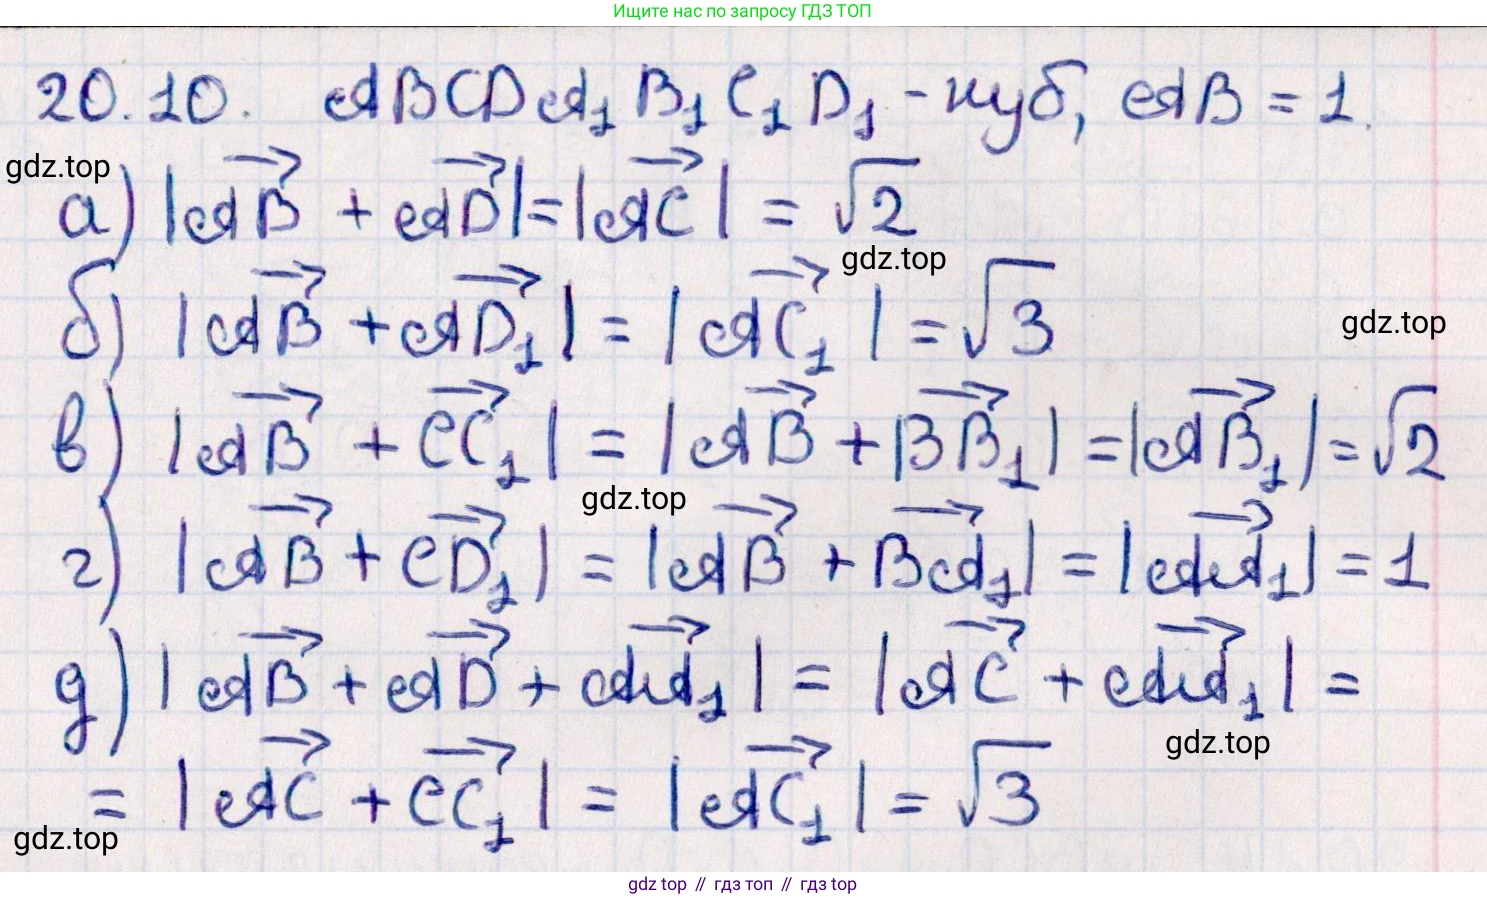 Ищите нас по запросу ГДЗ ТОП
20.10. ABCDA₁B₁C₁D₁ - куб, AB = 1.
gdz.top
а) |AB⃗ + AD⃗| = |AC⃗| = √2
gdz.top
б) |AB⃗ + AD₁⃗| = |AC₁⃗| = √3
gdz.top
в) |AB⃗ + CC₁⃗| = |AB⃗ + BB₁⃗| = |AB₁⃗| = √2
gdz.top
г) |AB⃗ + CD₁⃗| = |AB⃗ + BA₁⃗| = |AA₁⃗| = 1
д) |AB⃗ + AD⃗ + AA₁⃗| = |AC⃗ + AA₁⃗| =
gdz.top
= |AC⃗ + CC₁⃗| = |AC₁⃗| = √3
gdz.top
gdz top // гдз топ // gdz top